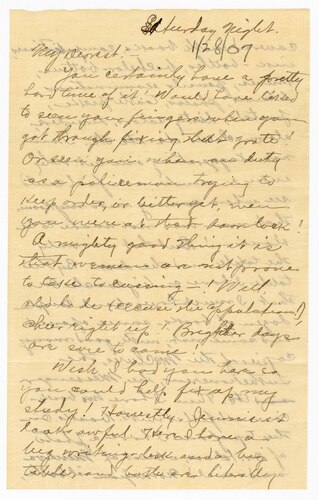 Saturday Night.
1/28/07
My Dearest:
You certainly have a pretty
hard time of it. Would have liked
to seen your fingers when you
got through fixing that grate
Or seen you when on duty
as a policeman trying to
keep order, or better yet, when
you were at that
A mighty good thing it is
that women are not prone
to take to cussing — ! Well
old
cheer right up. Brighter days
are sure to come.
Wish I had you here so
you could help fix up my
study! Honestly, Jennie it
looks awful. Here I have a
big working desk and a big
table, and both are literally